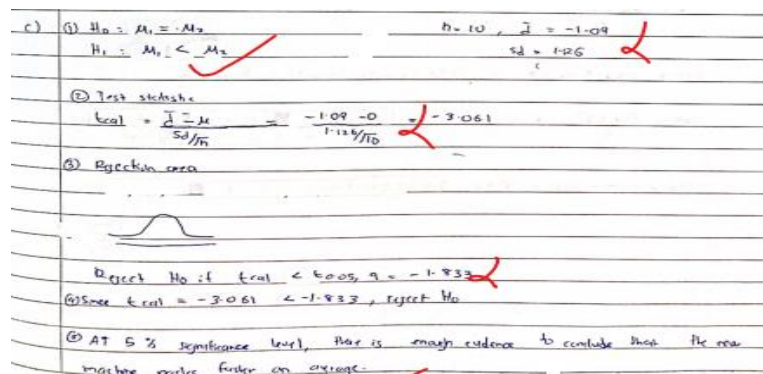 c) ① H₀ : μ₁ = μ₂ n = 10 , d̄ = -1.09
H₁ : μ₁ < μ₂ sd = 1.26
② Test statistic
tcal = d̄ - μ / sd/√n = -1.09 - 0 / 1.126/√10 = -3.061
③ Rejection area
Reject H₀ if tcal < t0.05, 9 = -1.833
④ Since tcal = -3.061 < -1.833, reject H₀
⑤ At 5 % significance level, there is enough evidence to conclude that the new
machine packs faster on average.